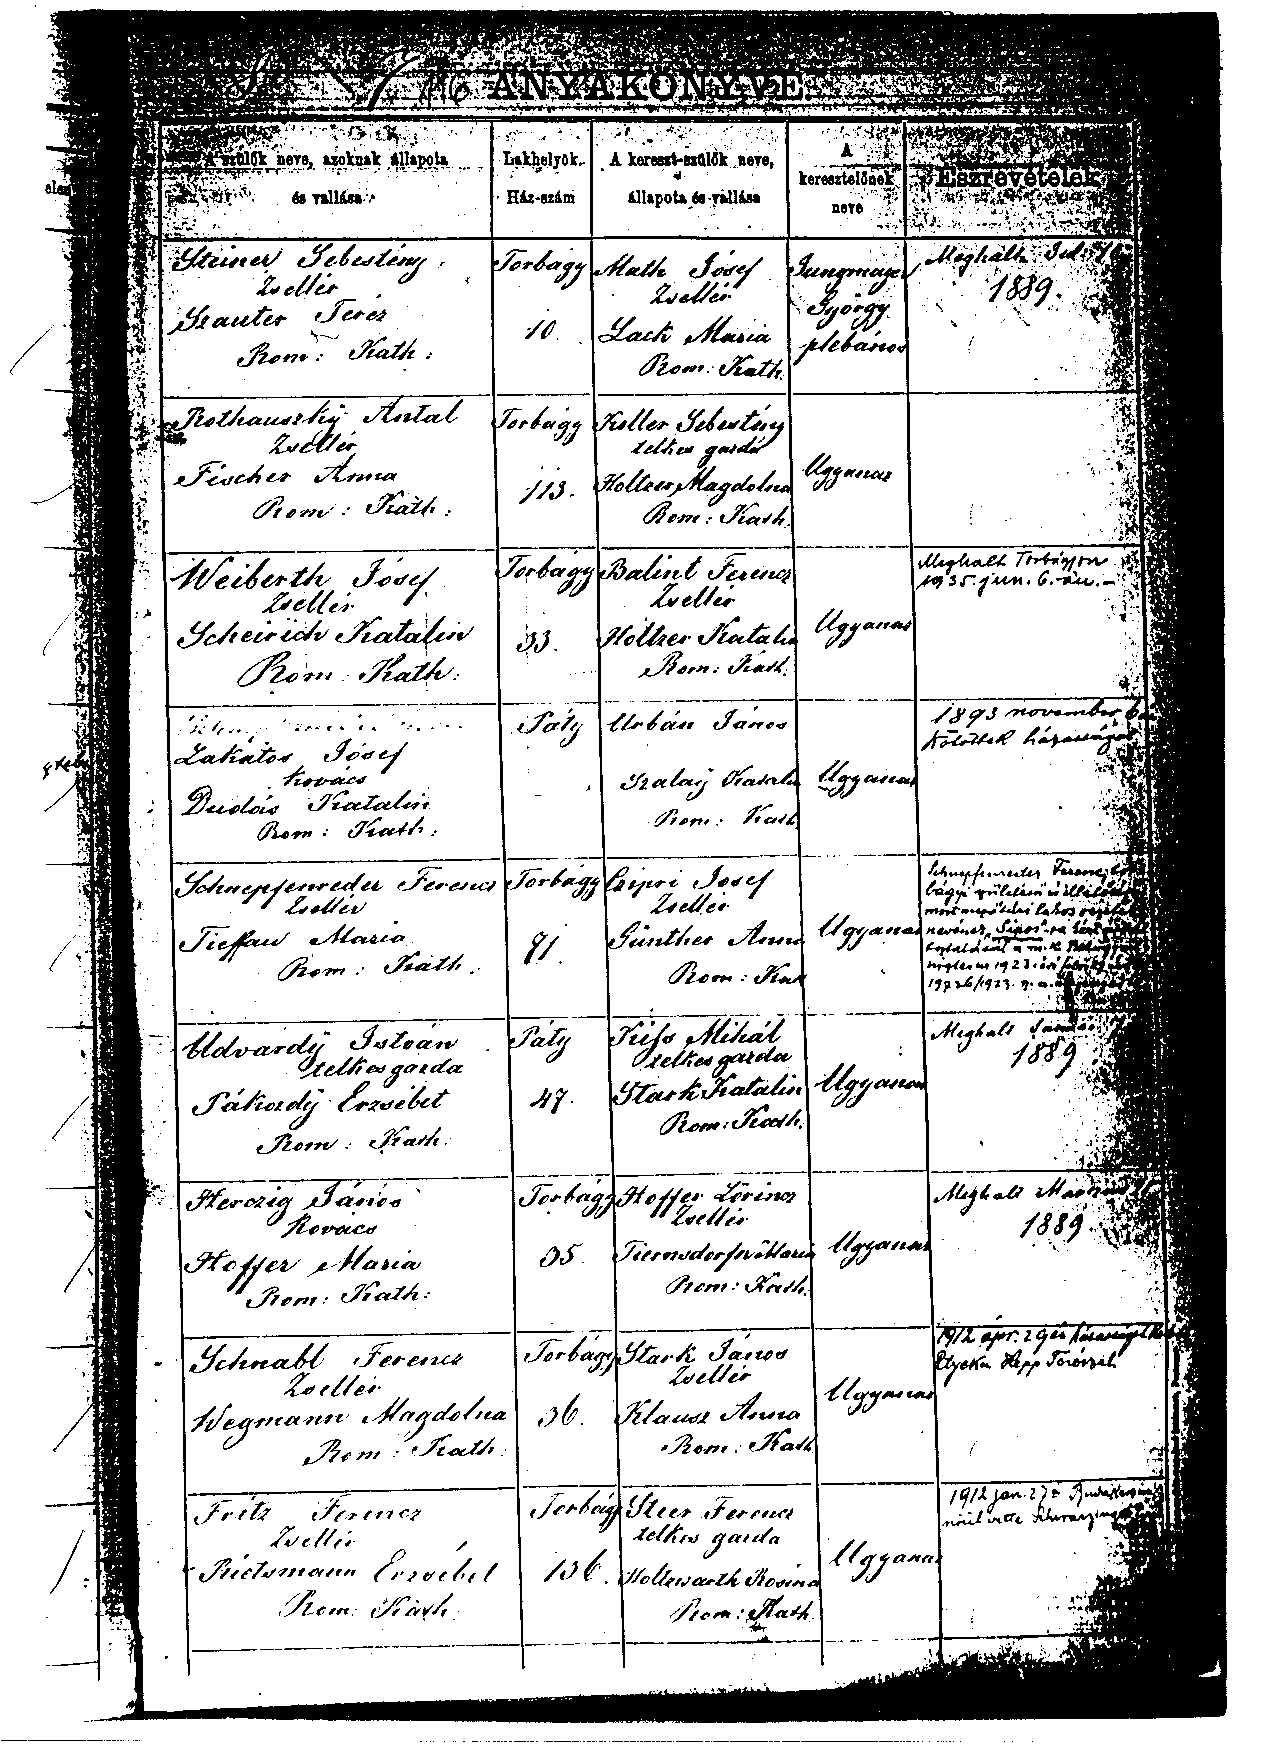 ANYAKÖNYVE
A szülők neve, azoknak állapota
és vallása
Lakhelyök.
Ház-szám
A kereszt-szülők neve,
állapota és vallása
A
keresztelőnek
neve
Észrevételek
Steiner Sebestény
Zsellér
Szauter Teréz
Rom: Kath:
Torbágy
10
Math Jósef
Zsellér
Lack Maria
Rom: Kath.
Jungmayer
György
plébános
Meghalt Jul.
1889.
Rothauszky Antal
Zsellér
Fischer Anna
Rom: Kath:
Torbágy
113.
Keller Sebestény
telkes gazda
Holtzer Magdolna
Rom: Kath.
Ugyanaz
Weiberth Jósef
Zsellér
Scheirich Katalin
Rom: Kath:
Torbágy
33.
Balint Ferencz
Zsellér
Holtzer Katalin
Rom: Kath.
Ugyanaz
Meghalt Torbágyon
1935. jun. 6.-án.-
Lakatos Jósef
Kovács
Dudás Katalin
Rom: Kath:
Páty
Urbán János
Szalay Katalin
Rom: Kath
Ugyanaz
1893 november 6
kötöttek házasságot
Schnepfenreder Ferencz
Zsellér
Tieffau Maria
Rom: Kath.
Torbágy
91.
Czipri Josef
Zsellér
Günther Anna
Rom: Kath
Ugyanaz
Schnepfenreder Ferencz
Udvardy István
telkes gazda
Pákozdy Erzsébet
Rom: Kath.
Páty
47.
Kiss Mihál
telkes gazda
Stark Katalin
Rom: Kath.
Ugyanaz
Meghalt
1889
Herczig János
Kovács
Hoffer Maria
Rom: Kath:
Torbágy
35.
Hoffer Lőrincz
Zsellér
Tiernsdorfer Maria
Rom: Kath.
Ugyanaz
Meghalt
1889.
Schnabl Ferencz
Zsellér
Wegmann Magdolna
Rom: Kath.
Torbágy
36.
Stark János
Zsellér
Klausz Anna
Rom: Kath
Ugyanaz
1912 ápr. 29én házasságot
Etyeken Hepp Terézzel
Fritz Ferencz
Zsellér
Rietsmann Erzsébet
Rom: Kath.
Torbágy
136.
Steer Ferencz
telkes gazda
Holtzwarth Rosina
Rom: Kath.
Ugyanaz
1912 jan. 27
nőül vette